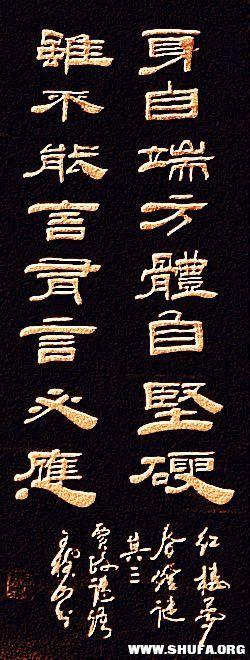 身自端方體自堅硬
雖不能言有言必應
红楼夢
春燈谜
其三
賈政谜語
WWW.SHUFA.ORG